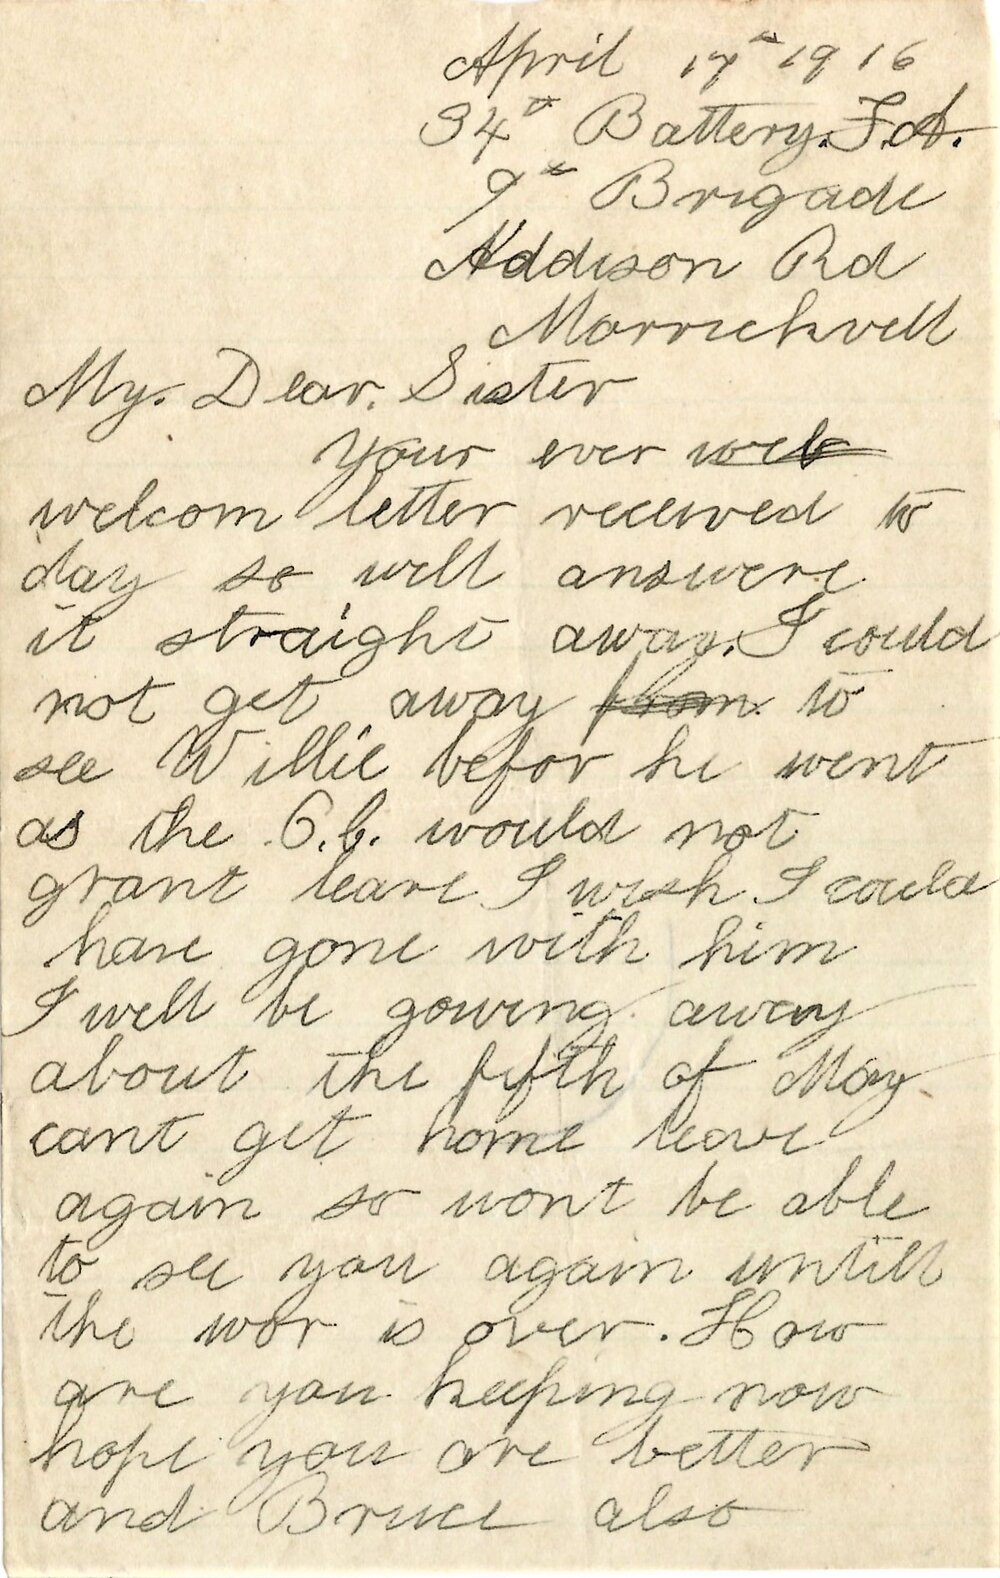 April 17th 1916
34th Battery. F.A.
9th Brigade
Addison Rd
Marrickvell
My. Dear. Sister
Your ever welb
welcom letter received to
day so will answere
it straight away. I could
not get away from to
see Willie befor he went
as the O.C. would not
grant leave I wish I could
have gone with him
I well be gowing away
about the fifth of May
cant get home leave
again so wont be able
to see you again untill
the war is over. How
are you keeping now
hope you are better
and Bruce also